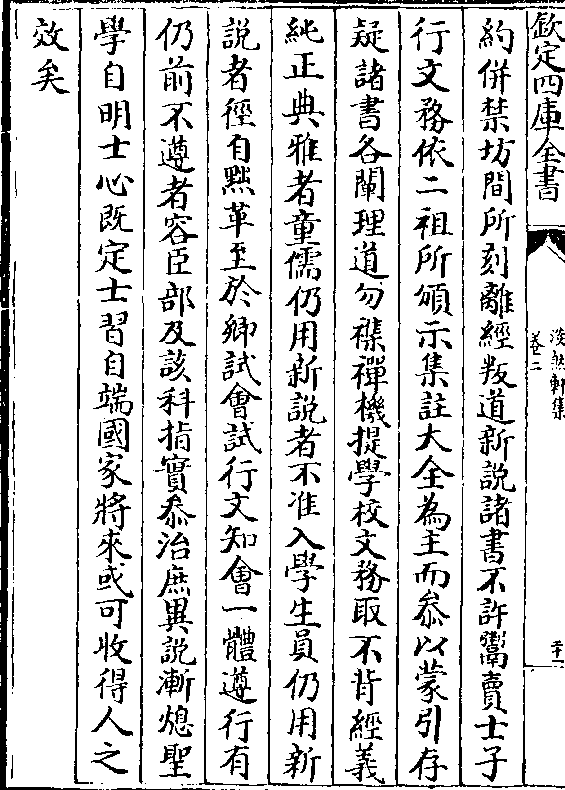 欽定四庫全書
淡然軒集
卷二
約併禁坊間所刻離經叛道新說諸書不許鬻賣士子
行文務依二祖所頒示集註大全為主而叅以蒙引存
疑諸書各闡理道勿襍禪機提學校文務取不背經義
純正典雅者童儒仍用新說者不准入學生員仍用新
說者徑自黜革至於鄉試會試行文知會一體遵行有
仍前不遵者容臣部及該科指實叅治庶異說漸熄聖
學自明士心既定士習自端國家將來或可收得人之
效矣